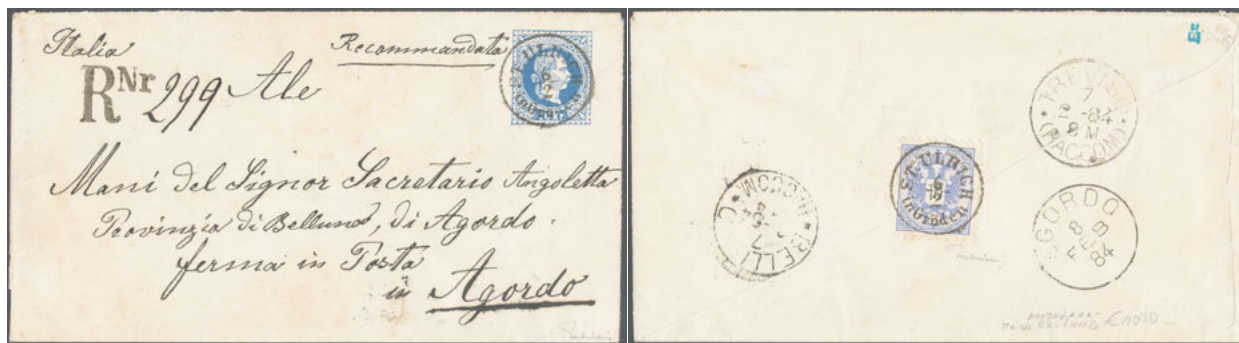 Italia
Recommandata
RNr 299 Ale
ST. ULRICH
6
2
in Gröden
Mani del Signor Sacretario Angoletta
Provinzia di Belluno, di Agordo.
ferma in Posta
in Agordo
TREVISO
7
84
8 M
(RACCOM)
ST. ULRICH
6
2
in Gröden
BELLU
RACCOM
7
AGORDO
8
FEB
84